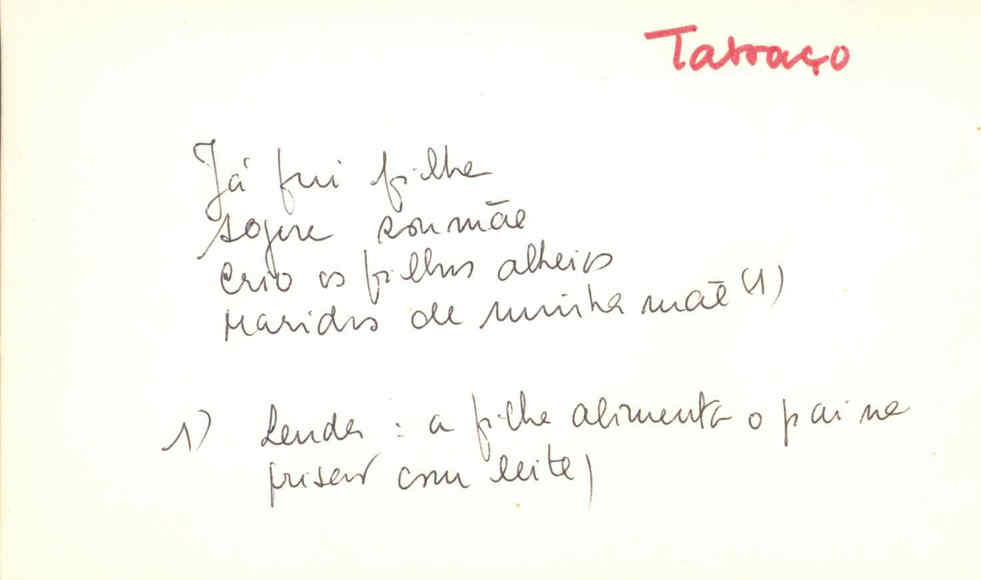 Tabraço
Já fui filha
sogra sou mãe
Crio os filhos alheios
Maridos de minha mãe (1)
1) Lenda : a filha alimenta o pai na
prisão com leite)